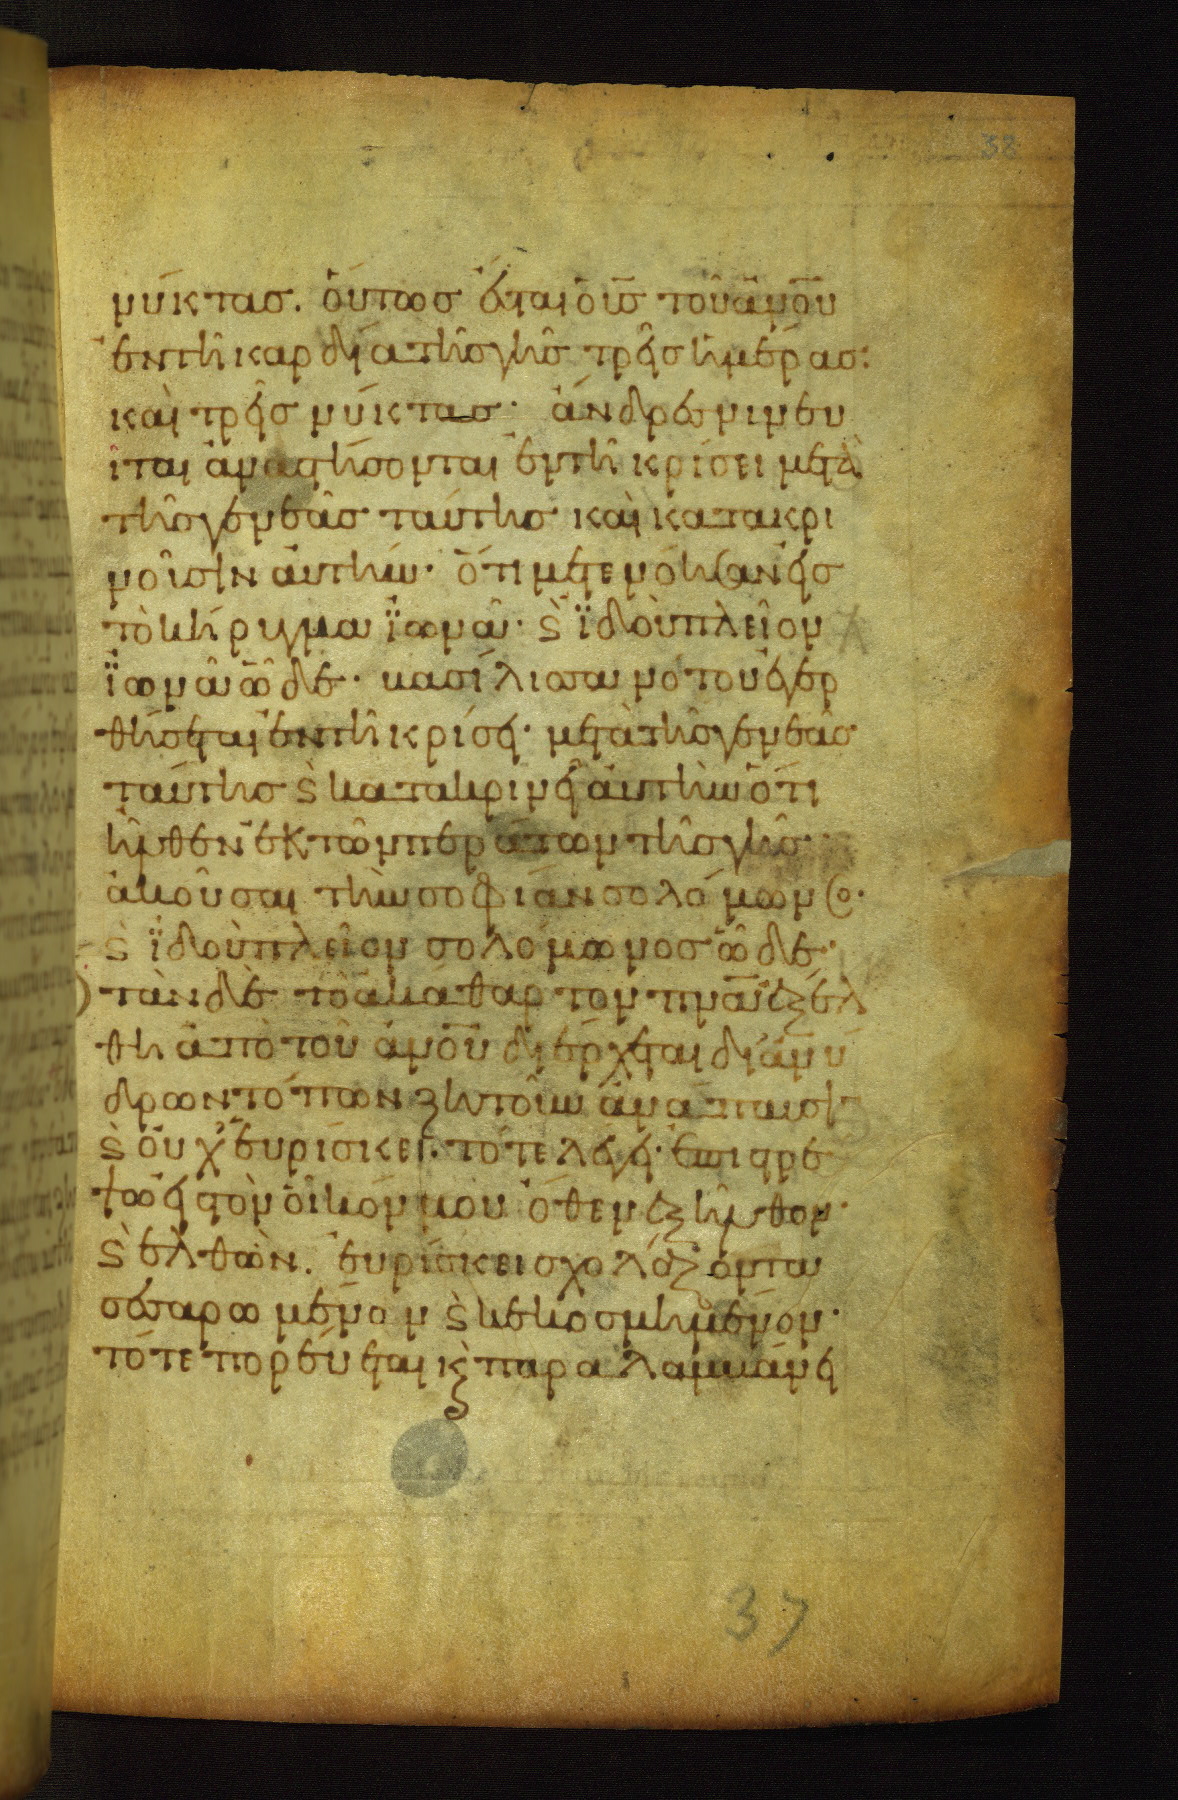 38
νύκτασ. ὅυτωσ ἔσται ὁ υ̅σ̅ τοῦ α̅ν̅ο̅υ̅
ἐν τῆ καρδία τῆσ γῆσ τρεῖσ ἡμέρασ:
καὶ τρεῖσ νύκτασ· ἄνδρεσ νινευ
ῖται ἀναστήσονται ἐν τῆ κρίσει μετὰ
τῆσ γενεᾶσ ταύτησ καὶ κατακρι
νοῦσιν ἀυτήν· ὅτι μετενόησαν εἰσ
τὸ κήρυγμα ϊωνᾶ· ϛ̀ ϊδοὺ πλεῖον
ϊωνᾶ ὧδε· βασίλισσα νότου ἐγερ
θήσεται ἐν τῆ κρίσει· μετὰ τῆσ γενεᾶσ
ταύτησ ϛ̀ κατακρινεῖ ἀυτὴν ὅτι
ἦλθεν ἐκ τῶν περάτων τῆσ γῆσ·
ἀκοῦσαι τὴν σοφίαν σολόμωνοσ·
ϛ̀ ϊδοὺ πλεῖον σολόμωνοσ ὧδε·
τὰν δὲ τὸ ἀκάθαρτον π̅ν̅α̅ ἐξέλ
θη ἀπὸ τοῦ α̅ν̅ο̅υ̅ διέρχεται δι' ἀνύ
δρων τόπων ζητοῦν ἀνάπαυσιν
ϛ̀ ὀυχ ἑυρίσκει· τότε λέγει· ἐπιστρέ
ψω εἰσ τὸν ὀῖκόν μου ὅθεν ἐξῆλθον·
ϛ̀ ἐλθὼν. ἑυρίσκει σχολάζοντα
σεσαρωμένον ϛ̀ κεκοσμημένον·
τότε πορέυεται κ̀ παραλαμβάνει
37